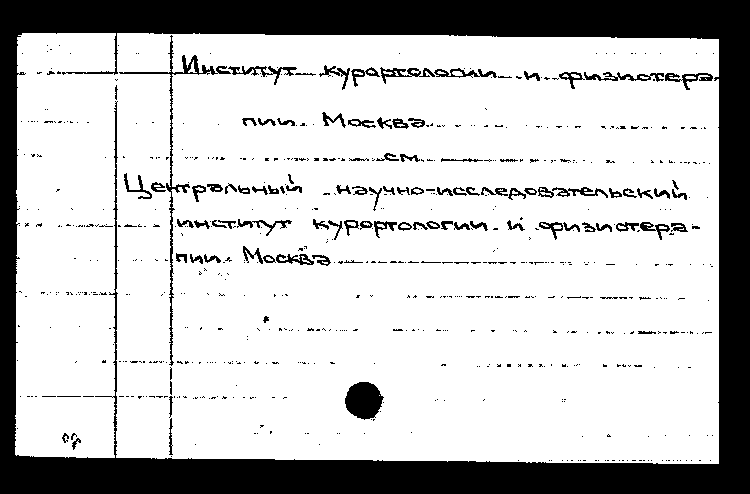 Институт курортологии и физиотера-
пии. Москва
см.
Центральный научно-исследовательский
институт курортологии и физиотера-
пии. Москва